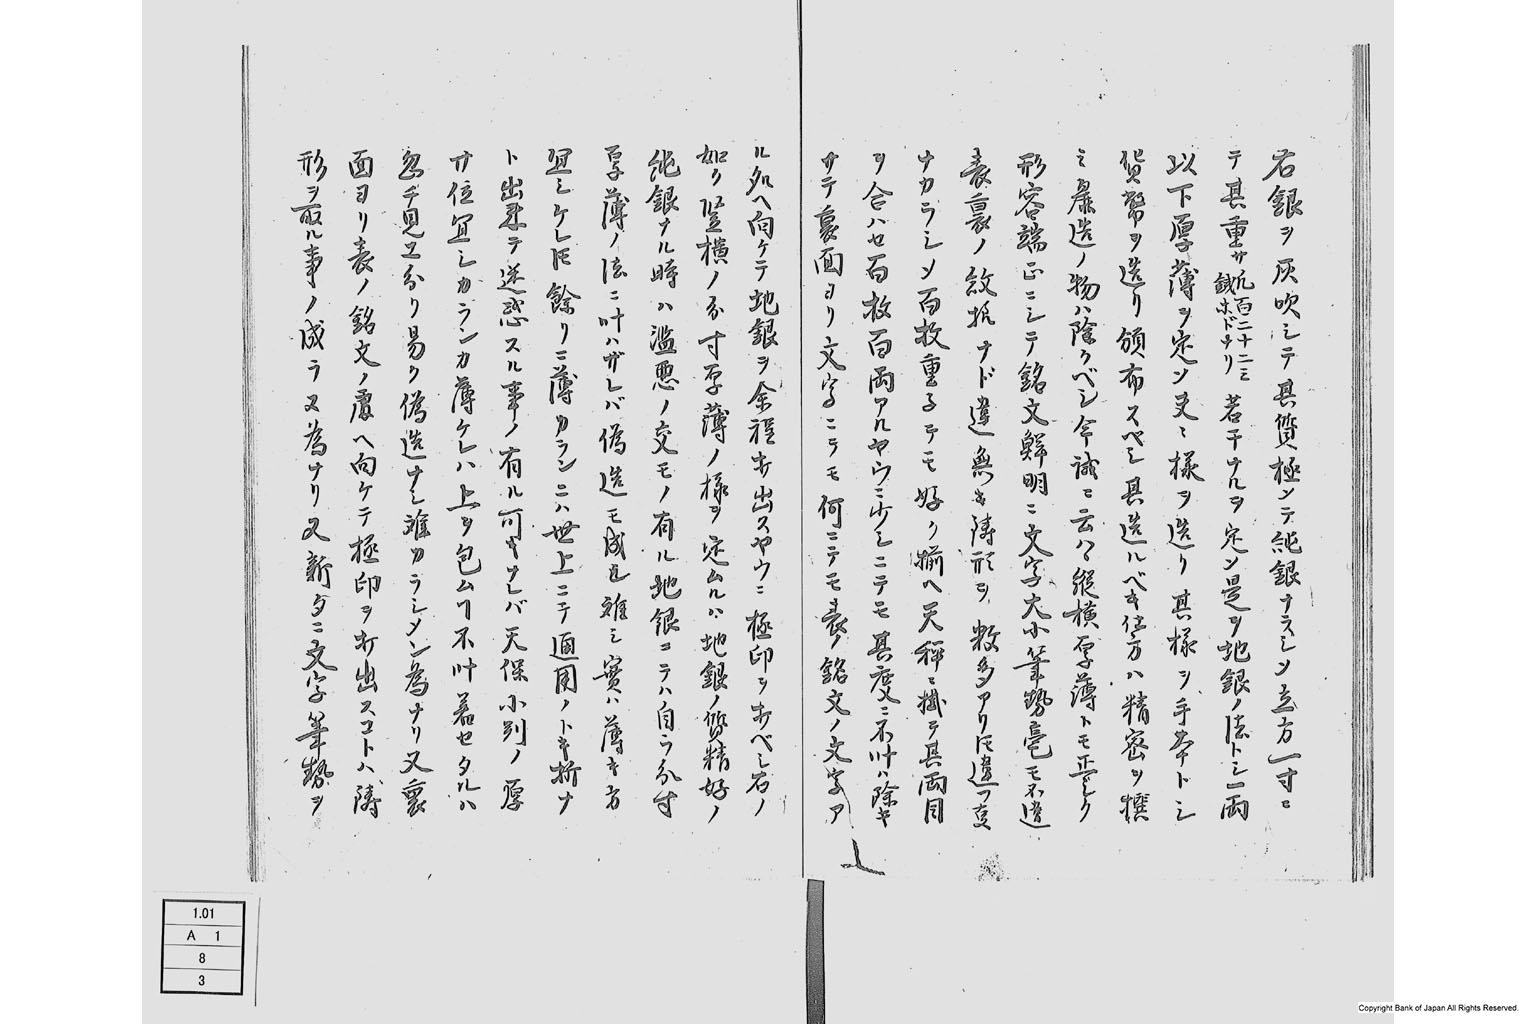 右銀ヲ灰吹シテ其質極ンテ純銀ナラシメ立方一寸ニ
テ其重サ凡百二十二ミ銭ホドナリ若干ナルヲ定メ是ヲ地銀ノ法トシ一両
以下厚薄ヲ定メ夫々様ヲ造リ其様ヲ手本トシ
貨幣ヲ造リ頒布スベシ其造ルベキ仕方ハ精密ヲ撰
ミ麁造ノ物ハ除クベシ今試ニ云ハヾ縦横厚薄トモ正シク
形容端正ニシテ銘文鮮明ニ文字大小筆勢毫モ不違
表裏ノ紋抦ナド違無キ鋳形ヲ数多アリ𪜈違フ事
ナカラシメ百枚重子テモ好ク揃ヘ天秤ニ掛テ其両目
ヲ合ハセ百枚百両アルヤウニ少シニテモ其度ニ不叶ハ除キ
サテ裏面ヨリ文字ニテモ何ニテモ表ノ銘文ノ文字ア
ル処ヘ向ケテ地銀ヲ余程打出スヤウニ極印ヲ打ベシ右ノ
如ク竪横ノ分寸厚薄ノ様ヲ定ムルハ地銀ノ質精好ノ
純銀ナル時ハ濫悪ノ交モノ有ル地銀ニテハ自ラ分寸
厚薄ノ法ニ叶ハザレバ偽造モ成シ難シ実ハ薄キ方
宜シケレ𪜈餘リニ薄カランニハ世上ニテ通用ノトキ折ナ
ト出来テ迷惑スル事ノ有ル可キナレバ天保小判ノ厚
サ位宜シカランカ薄ケレハ上ヲ包ムヿ不叶着セタルハ
忽チ見ヱ分リ易ク偽造ナシ難カラシメン為ナリ又裏
面ヨリ表ノ銘文ノ處ヘ向ケテ極印ヲ打出スコトハ鋳
形ヲ取ル事ノ成ラヌ為ナリ又新タニ文字筆勢ヲ
1.01
A 1
8
3
Copyright Bank of Japan All Rights Reserved.